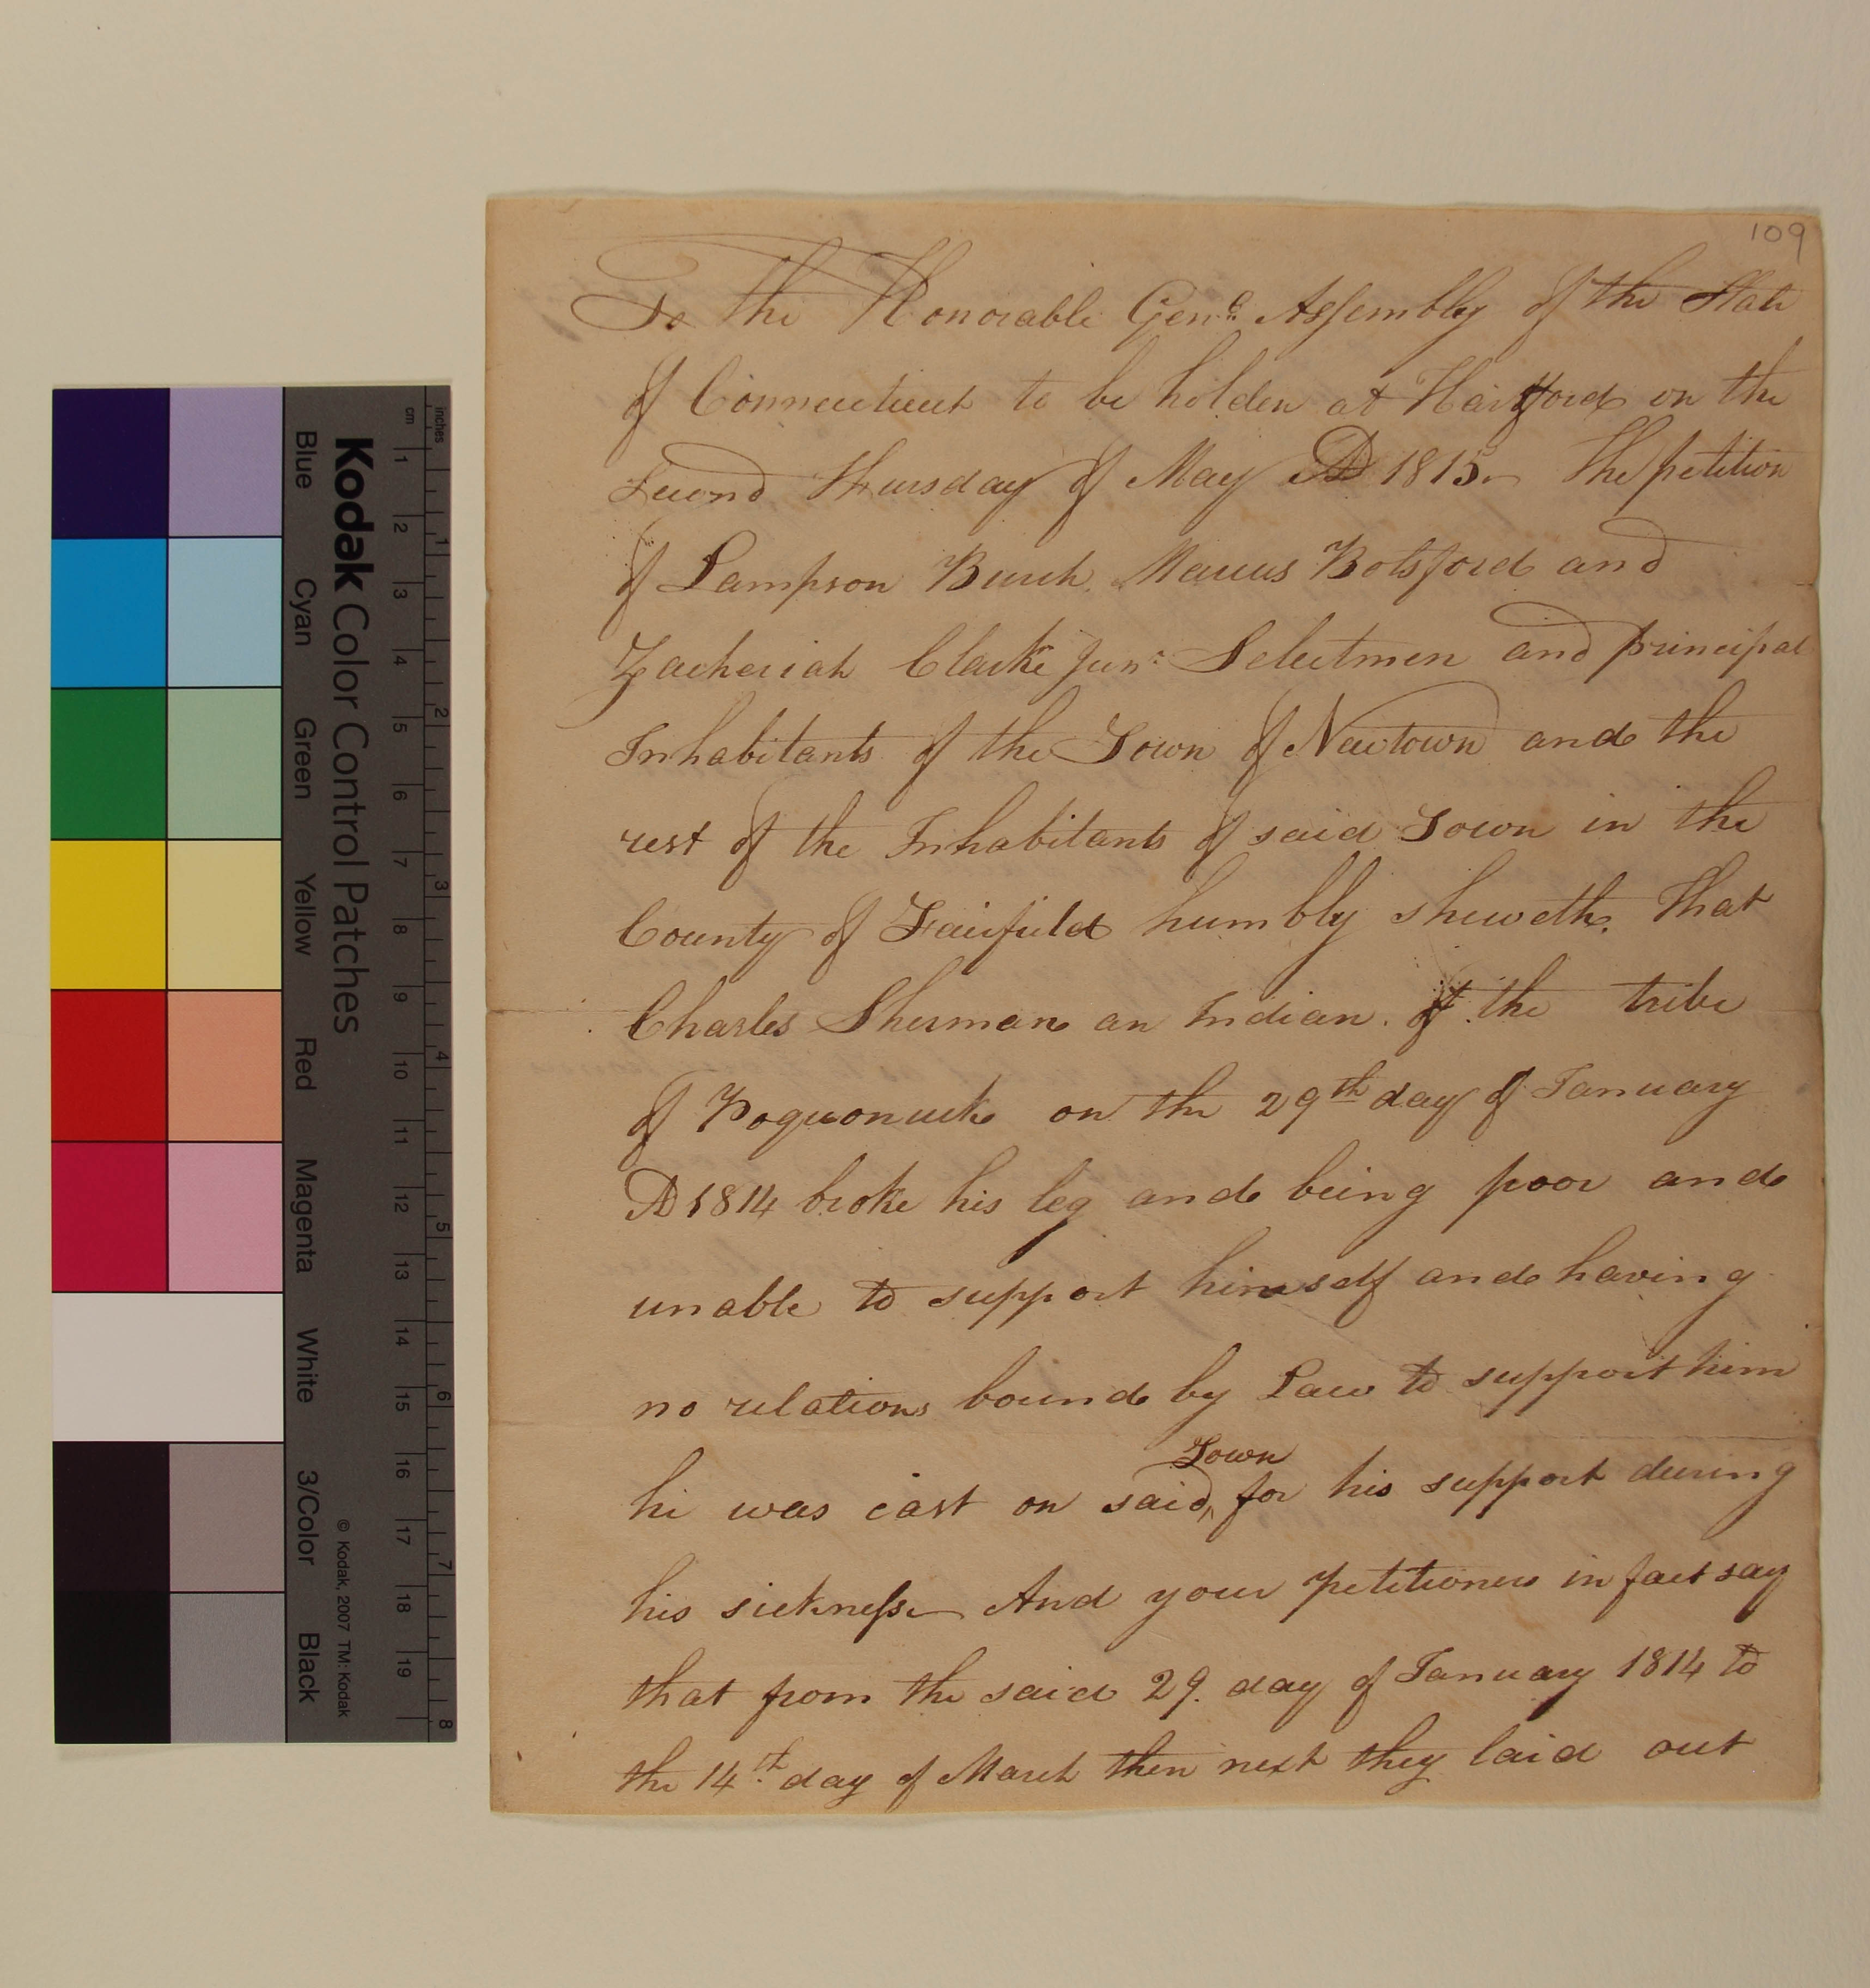 109
To the Honorable Genll. Assembly of the State
of Connecticut to be holden at Hartford on the
Second Thursday of May AD 1815. The petition
of Lampson Burch. Marcus Botsford and
Zacheriah Clarke Junr. Selectmen and principal
Inhabitants of the Town of Newtown and the
rest of the Inhabitants of said Town in the
County of Fairfield humbly sheweth. That
Charles Sherman an Indian. of the tribe
of Poquonuck on the 29th day of January
AD 1814 broke his leg and being poor and
unable to support himself and having
no relations bound by Law to support him
Town
he was cast on said ‸ for his support during
his sickneſs And your petitioners in fact say
that from the said 29. day of January 1814 to
the 14th. day of March then next they laid out
Kodak Color Control Patches
© Kodak, 2007 TM: Kodak
Blue Cyan Green Yellow Red Magenta White 3/Color Black
cm 1 2 3 4 5 6 7 8 9 10 11 12 13 14 15 16 17 18 19
inches 1 2 3 4 5 6 7 8